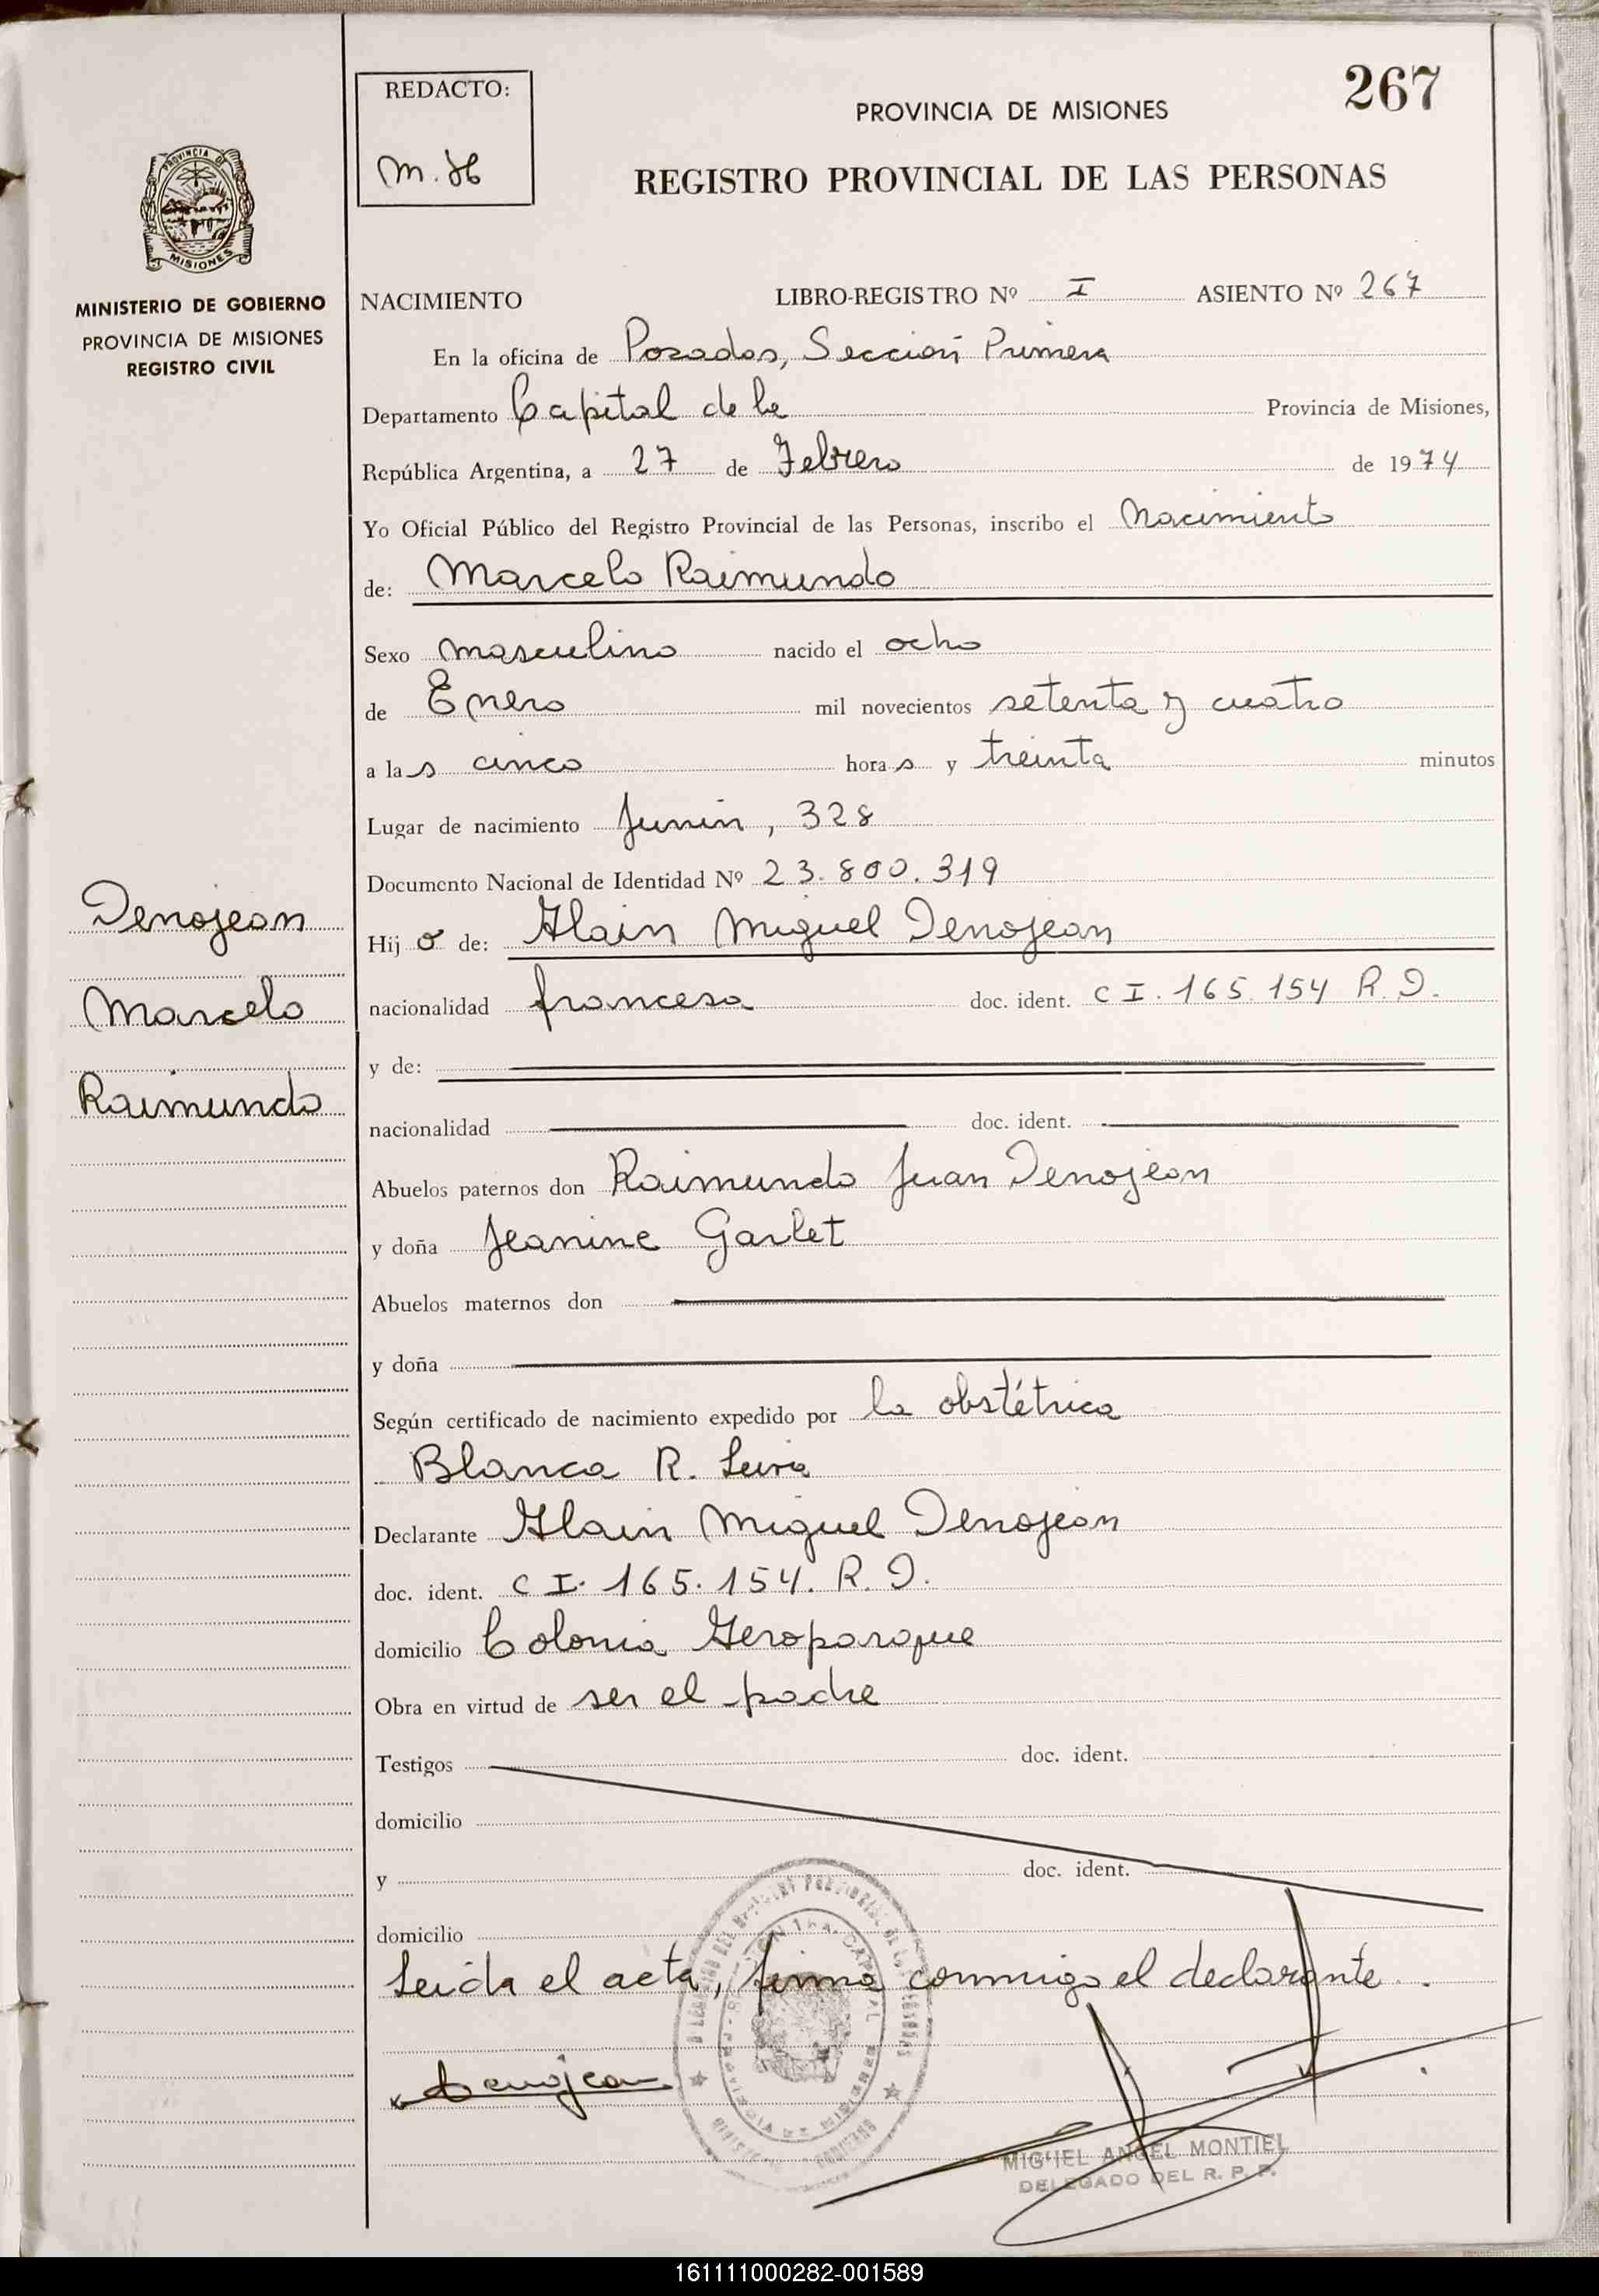 267
REDACTO:
PROVINCIA DE MISIONES
REGISTRO PROVINCIAL DE LAS PERSONAS
PROVINCIA DE
MISIONES
MINISTERIO DE GOBIERNO
PROVINCIA DE MISIONES
REGISTRO CIVIL
NACIMIENTO LIBRO-REGISTRO Nº I ASIENTO Nº 267
En la oficina de Posadas, Sección Primera
Departamento Capital de la Provincia de Misiones,
República Argentina, a 27 de Febrero de 1974
Yo Oficial Público del Registro Provincial de las Personas, inscribo el Nacimiento
de: Marcelo Raimundo
Sexo masculino nacido el ocho
de Enero mil novecientos setenta y cuatro
a las cinco horas y treinta minutos
Lugar de nacimiento Junín, 328
Documento Nacional de Identidad Nº 23.800.319
Hijo de: Alain Miguel Denojean
nacionalidad francesa doc. ident. C I. 165.154 R.D.
y de:
nacionalidad doc. ident.
Abuelos paternos don Raimundo Juan Denojean
y doña Jeanine Garlet
Abuelos maternos don
y doña
Según certificado de nacimiento expedido por la obstétrica
Blanca R. Leiva
Declarante Alain Miguel Denojean
doc. ident. C I. 165.154. R.D.
domicilio Colonia Aeroparque
Obra en virtud de ser el padre
Testigos doc. ident.
domicilio
y doc. ident.
domicilio
Leída el acta, firma conmigo el declarante.
Denojean
MIGUEL ANGEL MONTIEL
DELEGADO DEL R. P. P.
Denojean
Marcelo
Raimundo
161111000282-001589